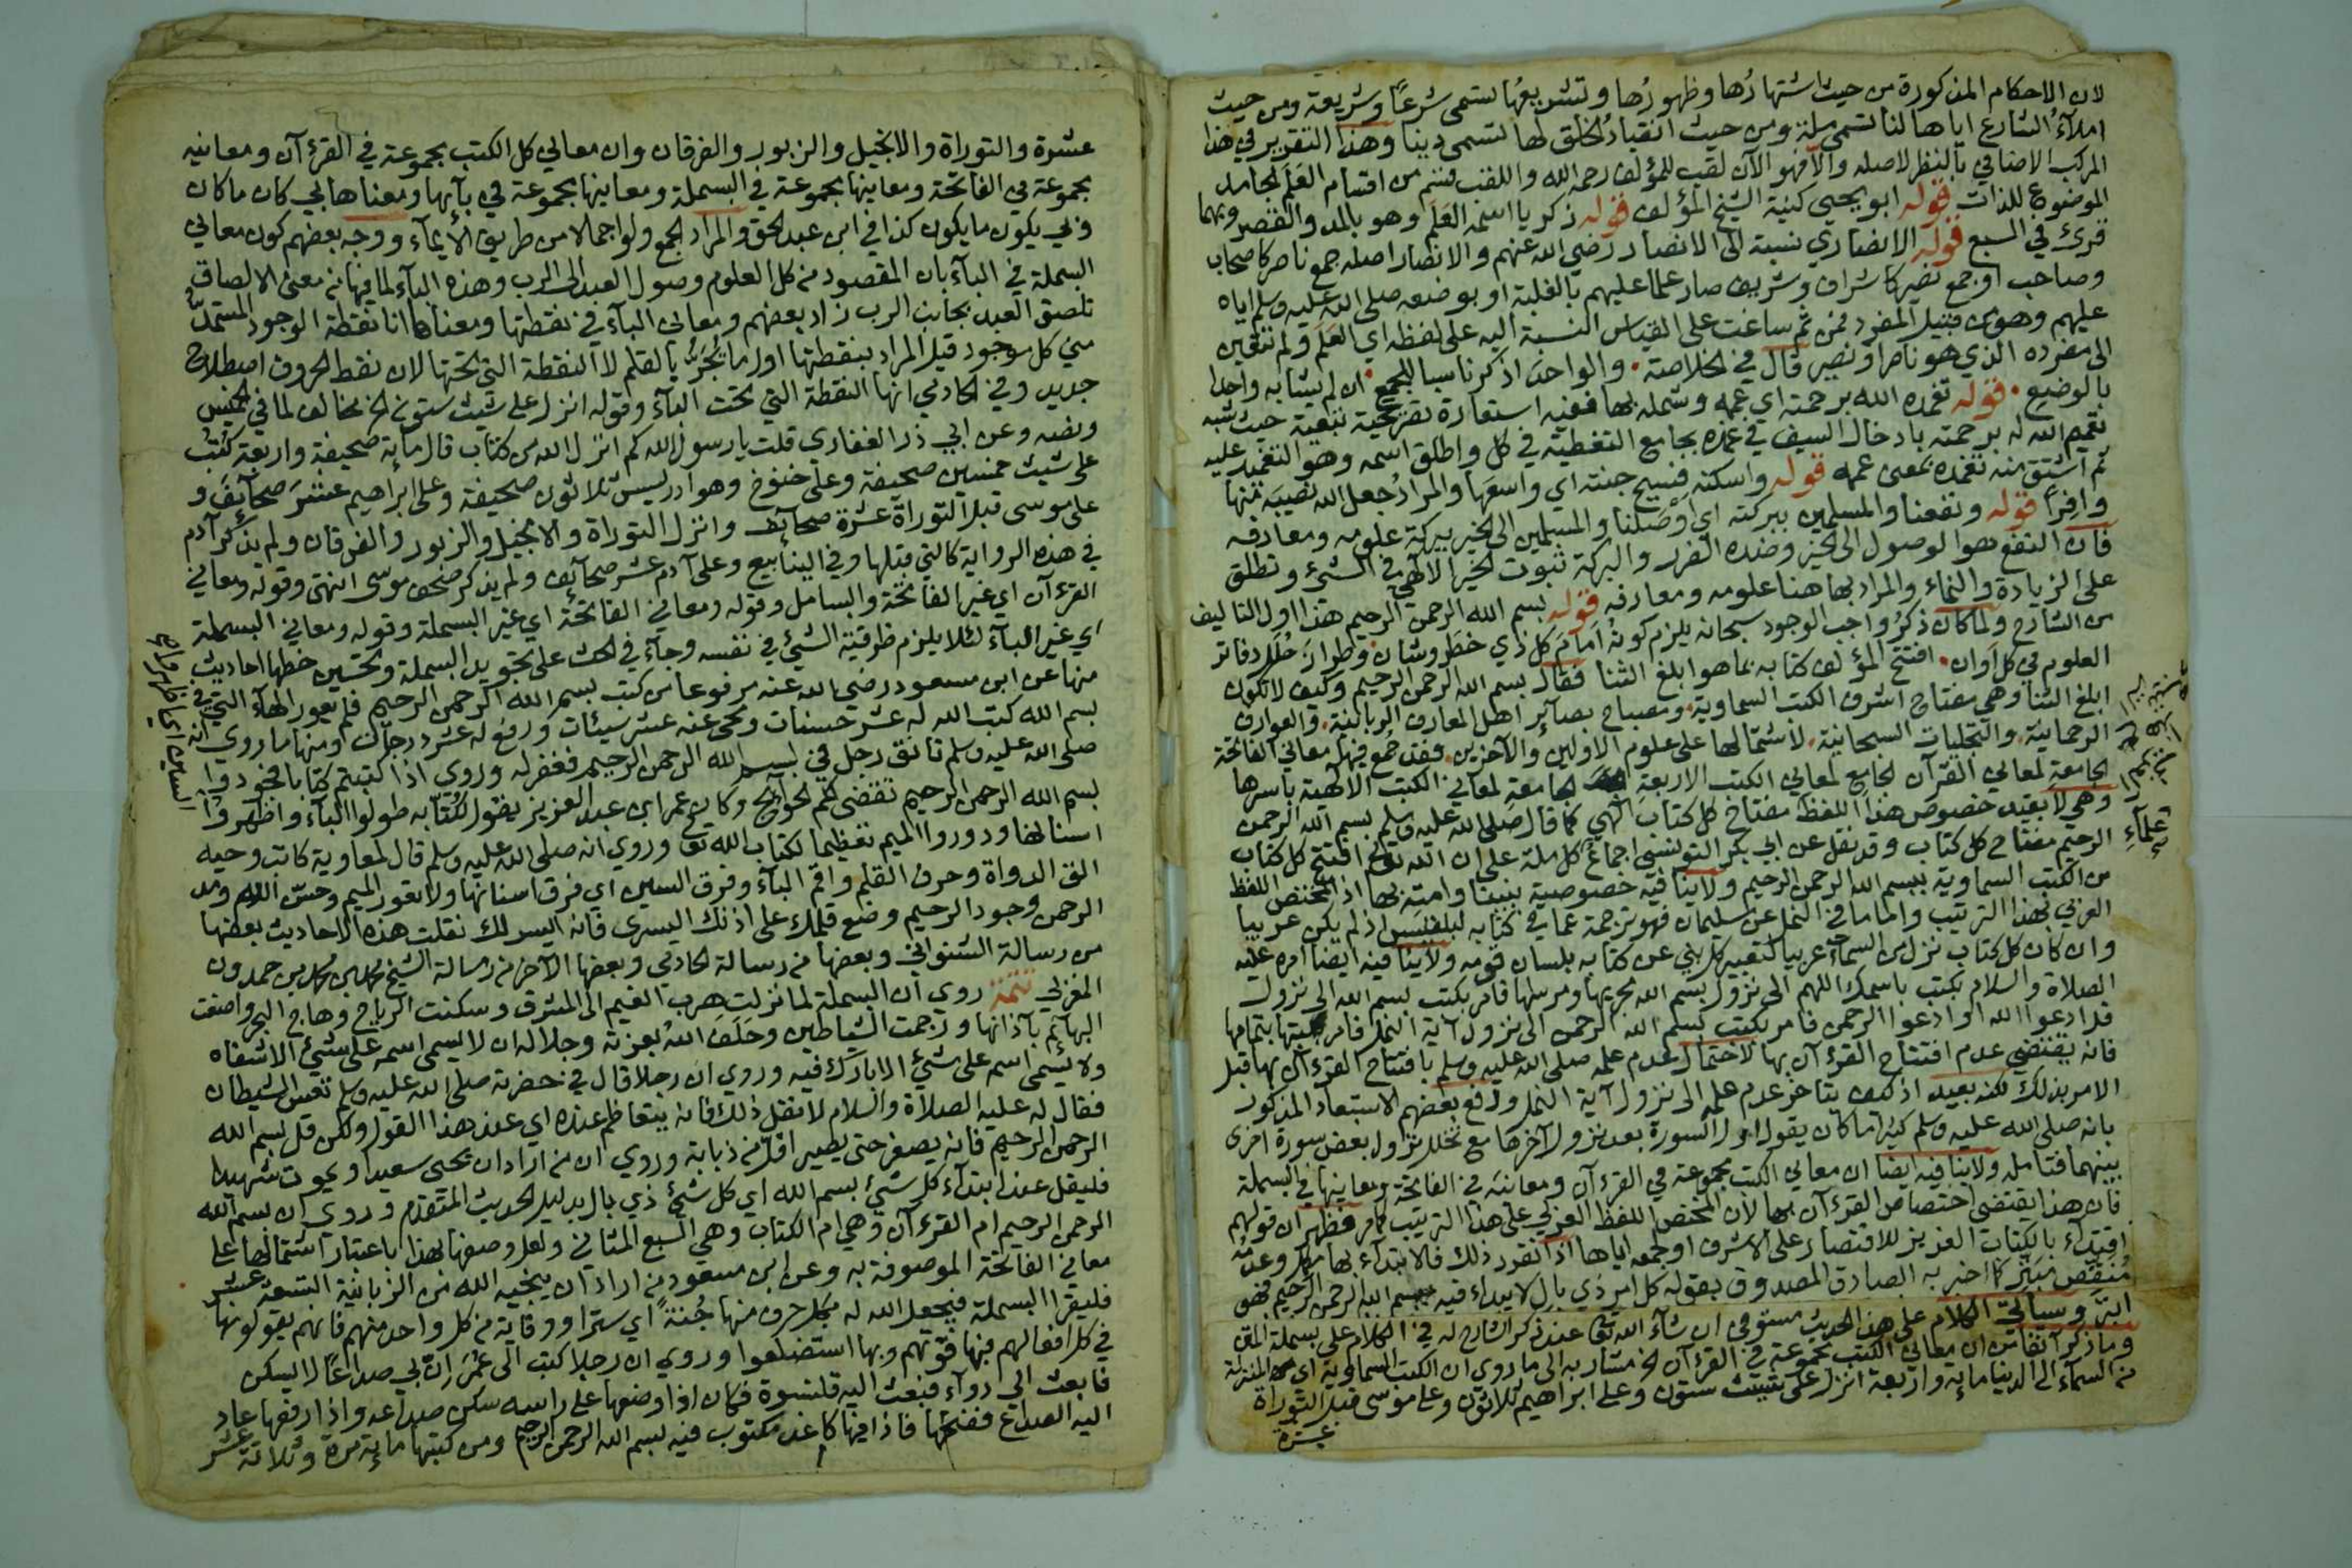 لان الاحكام المذكورة من حيث اشتهارُها وظهورُها وتشريعها تسمى شرعاً وشريعة ومن حيث
املاءُ الشارع اياها لنا تسمى ملة ومن حيث انقيادُ الخلق لها تسمى دينا وهذا التقرير في هذا
المركب الاضافي بالنظر لاصله والا فهو الآن لقب للمؤلف رحمه الله واللقب قسم من اقسام العَلَم لجامد
الموضوع للذات قوله ابو يحيى كنية الشيخ المؤلف قوله زكريا اسمه العَلَم وهو بالمد والقصر وبهما
قرئ في السبع قوله الانصاري نسبة الى الانصار رضي الله عنهم والانصار اصله جمع ناصر كاصحاب
وصاحب او جمع نصير كاشراف وشريف صار علما عليهم بالغلبة او بوضعه صلى الله عليه وسلم اياه
عليهم وهو من قبيل المفرد فمن ثم ساغت على القياس النسبة اليه على لفظه اي العَلَم ولم تتعين
الى مفرده الذي هو ناصر او نصير قال في الخلاصة والواحد اذكر ناسبا للجمع ان لم يشابه واحدا
بالوضع قوله تغمده الله برحمته اي عمه وشمله بها ففيه استعارة تصريحية تبعية حيث شبه
تعميم الله له برحمته بادخال السيف في غمده بجامع التغطية في كل واطلق اسمه وهو التغميد عليه
ثم اشتق منه تغمده بمعنى عمه قوله واسكنه فسيح جنته اي واسعَها والمراد جعل الله نصيبَه منها
وافراً قوله ونفعنا والمسلمين ببركته اي اوصَلنا والمسلمين الى الخير ببركة علومه ومعارفه
فان النفع هو الوصول الى الخير وضده الضرر والبركة ثبوت الخير الالهي في الشيء وتطلق
على الزيادة والنماء والمراد بها هنا علومه ومعارفه قوله بسم الله الرحمن الرحيم هذا اول التاليف
من الشارح ولما كان ذكرُ واجب الوجود سبحانه يلزم كونه اَمامَ كل ذي خطَر وشان وطراز حُلَل دفاتر
العلوم في كل اوان افتتح المؤلف كتابه بما هو ابلغ الثنا فقال بسم الله الرحمن الرحيم وكيف لا تكون
ابلغ الثنا وهي مفتاح اشرف الكتب السماوية ومصباح بصائر اهل المعارف الربانية والعوارف
الرحمانية والتجليات السبحانية لاشتمالها على علوم الاولين والآخرين فقد جُمع فيها معاني الفاتحة
الجامعةِ لمعاني القرآن الجامع لمعاني الكتب الاربعة الجامعة لمعاني الكتب الالهية باسرها
وهي لا بقيد خصوص هذا اللفظ مفتاح كل كتاب الهي كما قال صلى الله عليه وسلم بسم الله الرحمن
الرحيم مفتاح كل كتاب وقد نقل عن ابي بكر التونسي اجماعُ كل ملة على ان الله تعالى افتتح كل كتاب
من الكتب السماوية ببسم الله الرحمن الرحيم ولا ينافيه خصوصية نبينا وامته بها اذ المختص اللفظ
العربي بهذا الترتيب واما ما في النمل عن سليمان فهو ترجمة عما في كتابه لبلقيس اذ لم يكن عربيا
وان كان كل كتاب نزل من السماء عربيا لتعبير كل نبي عن كتابه بلسان قومه ولا ينافيه ايضا امره عليه
الصلاة والسلام بكتب باسمك اللهم الى نزول بسم الله مجريها ومرساها فامر بكتب بسم الله الى نزول
قل ادعوا الله او ادعوا الرحمن فامر بكتب بسم الله الرحمن الى نزول آية النمل فامر بكتبها بتمامها
فانه يقتضي عدم افتتاح القرءآن بها لاحتمال عدم علمه صلى الله عليه وسلم بافتتاح القرءآن بها قبل
الامر بذلك لكنه بعيد اذ كيف يتاخر عدم علمه الى نزول آية النمل ودفع بعضهم الاستبعاد المذكور
بانه صلى الله عليه وسلم كثيرا ما كان يقول اول السورة بعد نزول آخرها مع تخلل نزول بعض سورة اخرى
بينهما فتامله ولا ينافيه ايضا ان معاني الكتب مجموعة في القرءآن ومعانيَه في الفاتحة ومعاينها في البسملة
فان هذا يقتضي اختصاص القرءآن بها لان المختص اللفظ العربي على هذا الترتيب كما مر فظهر ان قولهم
اقتداءً بالكتاب العزيز للاقتصار على الاشرف او جمعه اياها اذا تقرر ذلك فالابتداء بها مكمّل وعدمُه
مُنقِص مُبَتِّر كما اخبر به الصادق المصدوق بقوله كل امر ذي بال لا يبداء فيه ببسم الله الرحمن الرحيم فهو
ابتر وسياتي الكلام على هذا الحديث مستوفى ان شاء الله تعالى عند ذكر الشارح له في الكلام على بسملة المتن
وما ذكر آنفا من ان معاني الكتب مجموعة في القرءآن الخ مشار به الى ما روي ان الكتب السماوية اي المنزلة
من السماء الى الدنيا ماية واربعة انزل على شيث ستون وعلى ابراهيم ثلاثون وعلى موسى قبل التوراة
عشرة
عشرة والتوراة والانجيل والزبور والفرقان وان معاني كل الكتب مجموعة في القرءآن ومعانيه
مجموعة في الفاتحة ومعاينها مجموعة في البسملة ومعاينها مجموعة في بآئها ومعناها بي كان ما كان
وبي يكون ما يكون كذا في ابن عبد الحق والمراد الجمع ولو اجمالا من طريق الايماء ووجه بعضهم كون معاني
البسملة في الباء بان المقصود من كل العلوم وصول العبد الى الرب وهذه الباء لما فيها من معنى الالصاق
تلصق العبد بجانب الرب زاد بعضهم ومعاني الباء في نقطتها ومعناها انا نقطة الوجود المستمد
مني كل موجود قيل المراد بنقطتها اول ما يُجَرّ بالقلم لا النقطة التي تحتها لان نقط الحروف اصطلاح
جديد وفي الحادي انها النقطة التي تحت الباء وقوله انزل على شيث ستون الخ مخالف لما في الخميس
ونصه وعن ابي ذر الغفاري قلت يا رسول الله كم انزل الله من كتاب قال ماية صحيفة واربعة كتب
على شيث خمسين صحيفة وعلى خنوخ وهو ادريس ثلاثون صحيفة وعلى ابراهيم عشر صحايف و
على موسى قبل التوراة عشرة صحائف وانزل التوراة والانجيل والزبور والفرقان ولم يذكر آدم
في هذه الرواية كالتي قبلها وفي الينابيع وعلى آدم عشر صحائف ولم يذكر صحف موسى انتهى وقوله ومعاني
القرءآن اي غير الفاتحة والبسامل وقوله ومعاني الفاتحة اي غير البسملة وقوله ومعاني البسملة
اي غير الباء لئلا يلزم ظرفية الشيء في نفسه وجاء في الحث على تجويد البسملة وتحسين خطها احاديث
منها عن ابن مسعود رضي الله عنه مرفوعا من كتب بسم الله الرحمن الرحيم فلم يعور الهاء التي في
بسم الله كتب الله له عشر حسنات ومحى عنه عشر سيئات ورفع له عشر درجات ومنها ما روي انه
صلى الله عليه وسلم قال تنوق رجل في بسم الله الرحمن الرحيم فغفر له وروي اذا كتبتم كتابا فجودوا
بسم الله الرحمن الرحيم تقضى لكم الحوائج وكان عمر ابن عبد العزيز يقول لكتابه طولوا الباء واظهروا
اسنانها ودوروا الميم تعظيما لكتاب الله تعالى وروي انه صلى الله عليه وسلم قال لمعاوية كاتب وحيه
الق الدواة وحرف القلم واقم الباء وفرق السين اي فرق اسنانها ولا تعور الميم وحسّن الله ومد
الرحمن وجود الرحيم وضع قلمك على اذنك اليسرى فانه ايسر لك نقلت هذه الاحاديث بعضها
من رسالة الشنواني وبعضها من رسالة الحادي وبعضها الآخر من رسالة الشيخ محمد بن حمدون
المغربي تتمة روي ان البسملة لما نزلت هرب الغيم الى المشرق وسكنت الرياح وهاج البحر واصغت
البهائم بآذانها ورجمت الشياطين وحَلَفَ اللهُ بعزته وجلاله ان لا يسمى اسمه على شيء الا شفاه
ولا يُسمى اسمه على شيء الا بارك فيه وروي ان رجلا قال في حضرته صلى الله عليه وسلم تعس الشيطان
فقال له عليه الصلاة والسلام لا تقل ذلك فانه يتعاظم عنده اي عند هذا القول ولكن قل بسم الله
الرحمن الرحيم فانه يصغر حتى يصير اقل من ذبابة وروي ان من اراد ان يحيى سعيدا ويموت شهيدا
فليقل عند ابتداء كل شيء بسم الله اي كل شيء ذي بال بدليل الحديث المتقدم وروي ان بسم الله
الرحمن الرحيم ام القرءآن وهي ام الكتاب وهي السبع المثاني ولعل وصفها بهذا باعتبار اشتمالها على
معاني الفاتحة الموصوفة به وعن ابن مسعود من اراد ان ينجيه الله من الزبانية التسعة عشر
فليقرا البسملة فيجعل الله له بكل حرف منها جُنةً اي سترا ووقاية من كل واحد منهم فانهم يقولونها
في كل افعالهم فبها قوتهم وبها استضلعوا وروي ان رجلا كتب الى عُمَر ان بي صداعا لا يسكن
فابعث الي دواء فبعث اليه قلنسوة فكان اذا وضعها على راسه سكن صداعه واذا رفعها عاد
اليه الصداع ففتحها فاذا فيها كاغد مكتوب فيه بسم الله الرحمن الرحيم ومن كتبها ماية مرة وثلاثة عشر